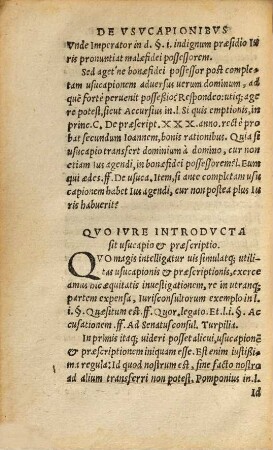 DE VSVCAPIONIBVS
Vnde Imperator in d. §. i. indignum præsidio Iu
ris pronuntiat malæfidei possessorem.
Sed aget'ne bonæfidei possessor post comple
tam usucapionem aduersus uerum dominum, ad
quē fortè peruenit possessio; Respondeo: utiq; age
re potest, sicut Accursius in. l. Si quis emptionis, in
princ. C. De præscript. XXX. anno. rectè pro
bat secundum Ioannem, bonis rationibus. Quia si
usucapio transfert dominium à domino, cur non
etiam Ius agendi, in bonæfidei possessorem? l. Eum
qui ædes. ff. De usuca. Item, si ante completam us
ucapionem habet Ius agendi, cur non postea plus Iu
ris habuerit?
QVO IVRE INTRODVCTA
sit usucapio & præscriptio.
QVO magis intelligatur uis simulatq; utili-
tas usucapionis & præscriptionis, exerce
amus hic æquitatis inuestigationem, re in utranq;
partem expensa, Iurisconsultorum exemplo in l
i. §. Quæsitum est. ff. Quor. legato. Et. l. i. §. Ac
cusationem. ff. Ad Senatusconsul. Turpilia.
In primis itaq; uideri posset alicui, usucapionē
& præscriptionem iniquam esse. Est enim iustissi-
ma regula: Id quod nostrum est, sine facto nostro
ad alium transferri non potest. Pomponius in. l.
Id